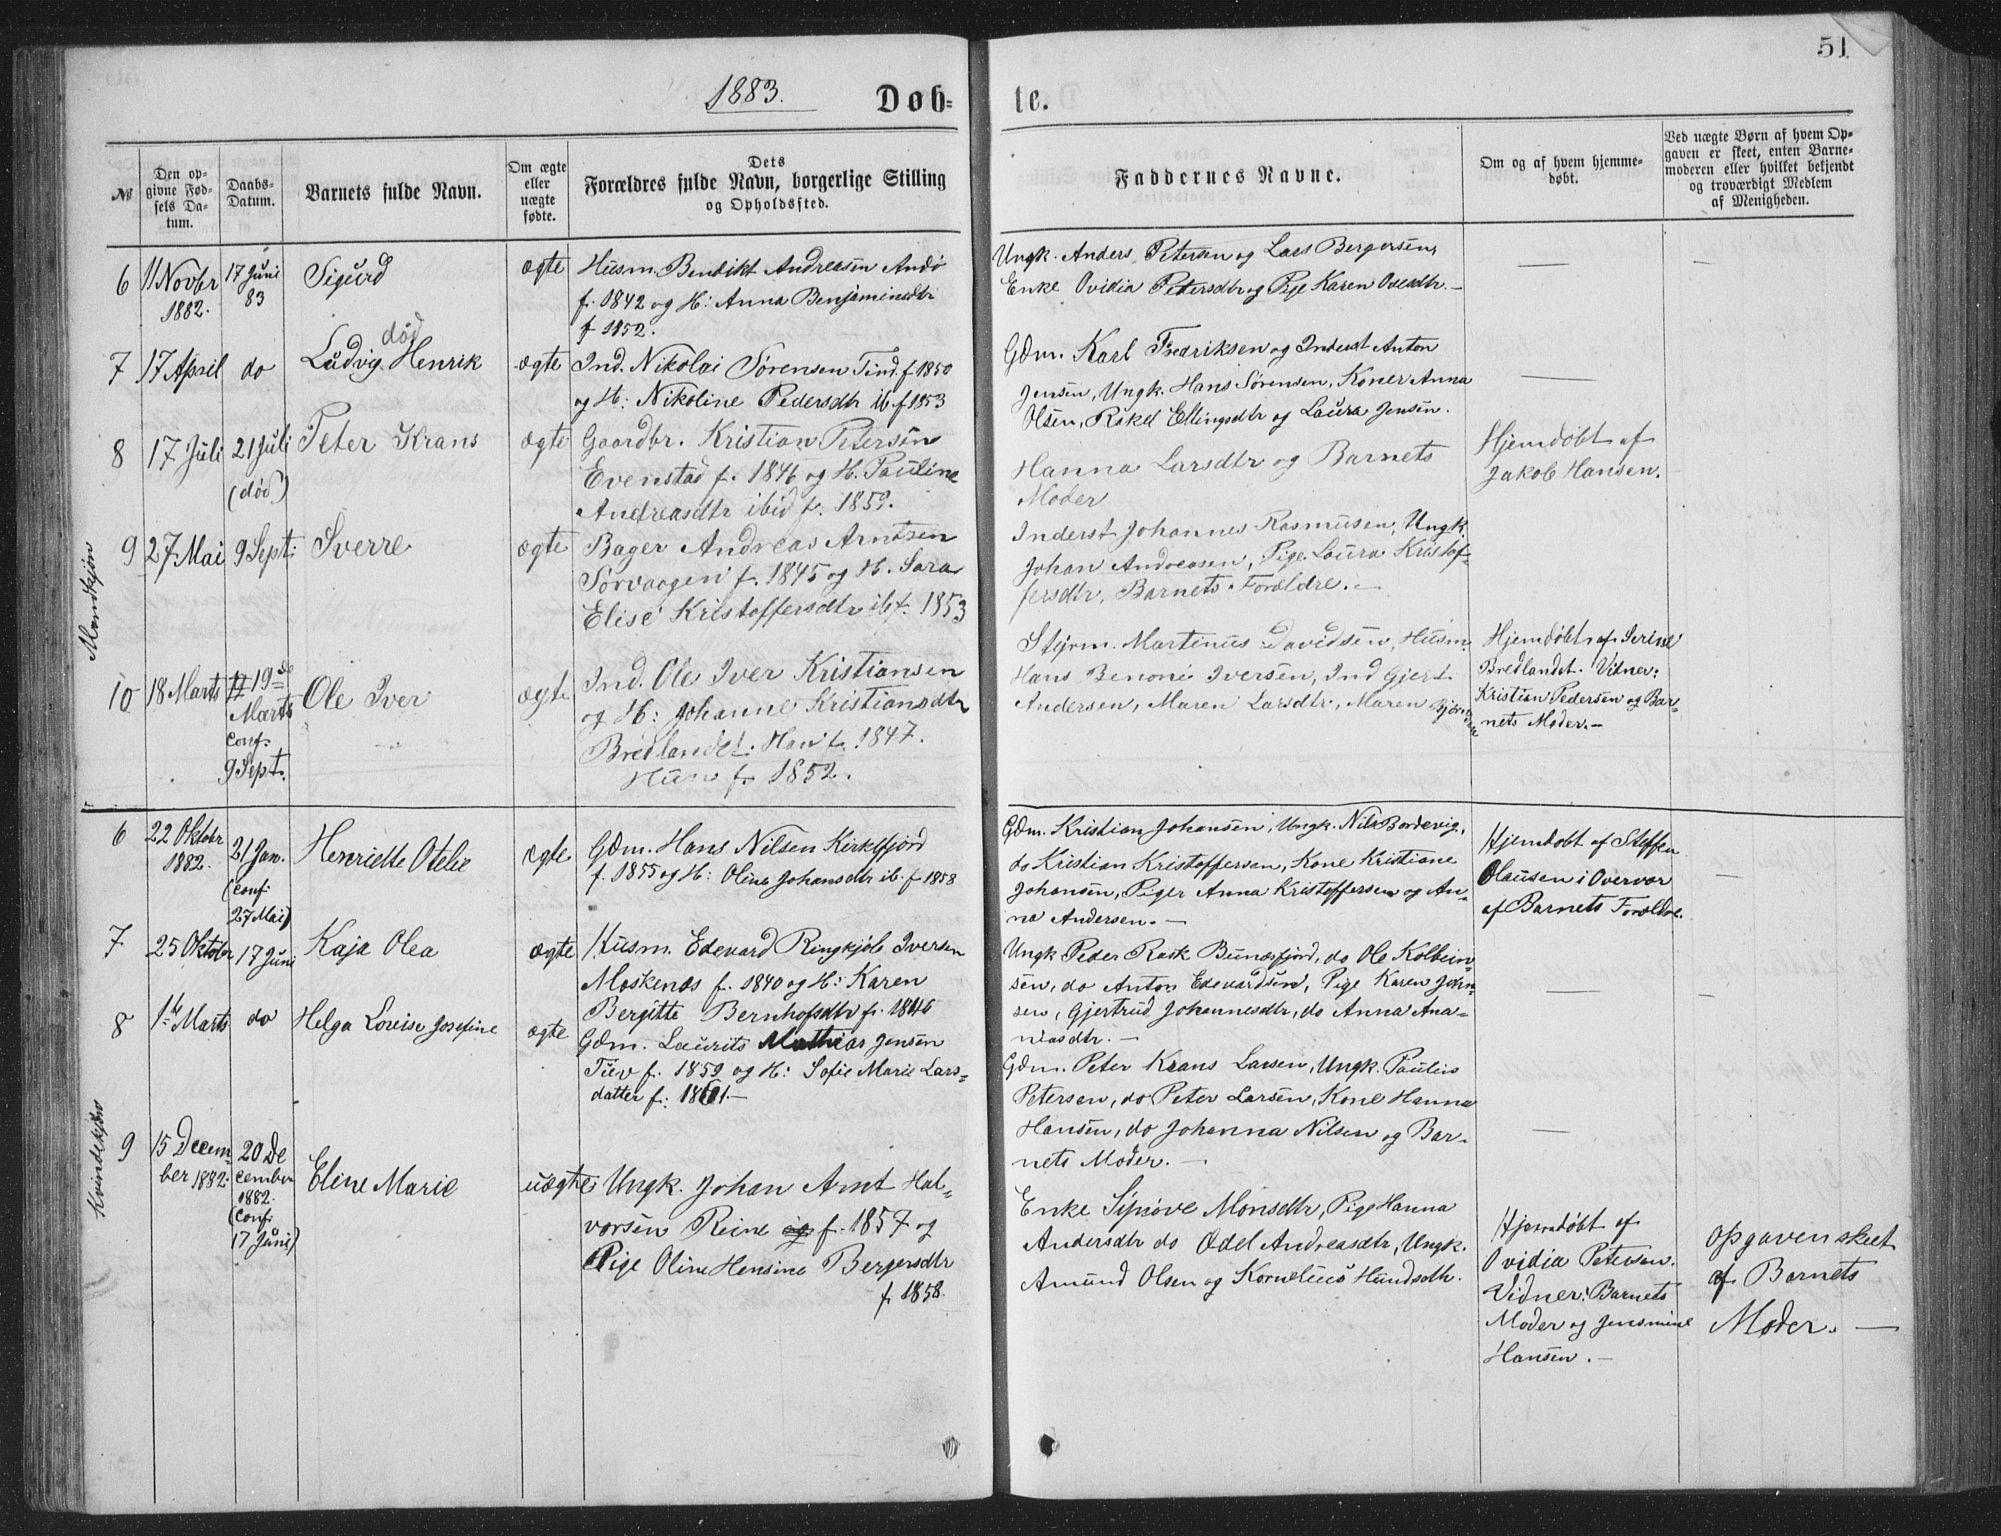 51
1883. Døb-te.
№
Den op-
givne Fød-
sels Da-
tum.
Daabs-
Datum.
Barnets fulde Navn.
Om ægte
eller
uægte
fødte.
Dets
Forældres fulde Navn, borgerlige Stilling
og Opholdssted.
Faddernes Navne.
Om og af hvem hjemme-
døbt.
Ved uægte Børn af hvem Op-
gaven er skeet, enten Barne-
moderen eller hvilket bekjendt
og troværdigt Medlem
af Menigheden.
Mandkjøn
6
11 Novbr
1882.
17 Juni
83
Sigurd
ægte
Husm. Bendikt Andreasen Andø
f. 1842 og H: Anna Benjaminsdtr
f 1852.
Ungk. Anders Petersen og Lars Bergersen,
Enke Ovidia Petersdtr og Pige Karen Olesdtr. -
—
—
7
17 April
do
død
Ludvig Henrik
ægte
Ind. Nikolai Sørensen Tind f 1850
og H: Nikoline Pedersdtr ib. f 1853
Gdm. Karl Fredriksen og Inderst Anton
Jensen, Ungk. Hans Sørensen, Koner Anna
Olsen, Rakel Ellingsdtr og Laura Jensen.
—
8
17 Juli
21 Juli
(død)
Peter Krans
ægte
Gaardbr. Kristian Petersen
Evenstad f. 1846 og H. Pauline
Andreasdtr ibid f. 1859.
Hanna Larsdtr og Barnets
Moder
Hjemdøbt af
Jakob Hansen.
9
27 Mai
9 Sept:
Sverre
ægte
Bager Andreas Arntsen
Sørvaagen f. 1845 og H. Sara
Elise Kristoffersdtr ib f. 1853
Inderst Johannes Rasmusen, Ungk.
Johan Andreasen, Pige Laura Kristof-
fersdtr, Barnets Forældre. -
10
18 Marts
19de
Marts
conf.
9 Sept.
Ole Iver
ægte
Ind. Ole Iver Kristiansen
og H: Johanne Kristiansdtr
Bredlandet. Han f. 1847.
Hun f. 1852.
Styrm. Martinus Davidsen, Husm.
Hans Benoni Iversen, Ind Gjert
Andersen, Maren Larsdtr, Maren
Hjemdøbt af Serine
Bredlandet. Vidner:
Kristian Pedersen og Bar-
nets Moder. -
Kvindekjøn
6
22 Oktobr
1882.
21 Jan.
(conf.
27 Mai)
Henriette Otelie
ægte
Gdm. Hans Nilsen Kirkefjord
f. 1855 og H: Oline Johansdtr ib. f 1858
Gdm. Kristian Johansen, Ungk. Nils Bordevig,
do Kristian Kristoffersen, Kone Kristiane
Johansen, Piger Anna Kristoffersen og An-
na Andersen. -
Hjemdøbt af Steffen
Olausen i Overvær
af Barnets Forældre.
—
7
25 Oktober
17 Juni
Kaja Olea
ægte
Husm. Edevard Ringkjøb Iversen
Moskenæs f. 1840 og H: Karen
Bergitte Bernhofsdtr f. 1846
Ungk Peder Rask Bunæsfjord, do Ole Kolbein-
sen, do Anton Edevardsen, Pige Karen John-
sen, Gjertrud Johannesdtr, do Anna Ana-
niasdtr. -
—
—
8
1ste Marts
do
Helga Lovise Josefine
ægte
Gdm. Laurits Mathias Jensen
Tuv f. 1859 og H: Sofie Marie Lars-
datter f: 1861. -
Gdm. Peter Krans Larsen, Ungk. Paulus
Petersen, do Peter Larsen, Kone Hanna
Hansen, do Johanna Nilsen og Bar-
nets Moder. -
—
9
15 Decem-
ber 1882.
20 De
cember
1882.
(conf.
17 Juni)
Eline Marie
uægte
Ungk. Johan Arnt Hal-
vorsen Reine og f. 1857 og
Pige Oline Hensine Bergersdtr
f. 1858.
Enke Synøve Monsdtr, Pige Hanna
Andersdtr do Odel Andreasdtr, Ungk.
Amund Olsen og Kornelius
Hjemdøbt af
Ovidia Petersen.
Vidner: Barnets
Moder og Jensmine
Hansen. -
Opgaven skeet
af Barnets
Moder. -